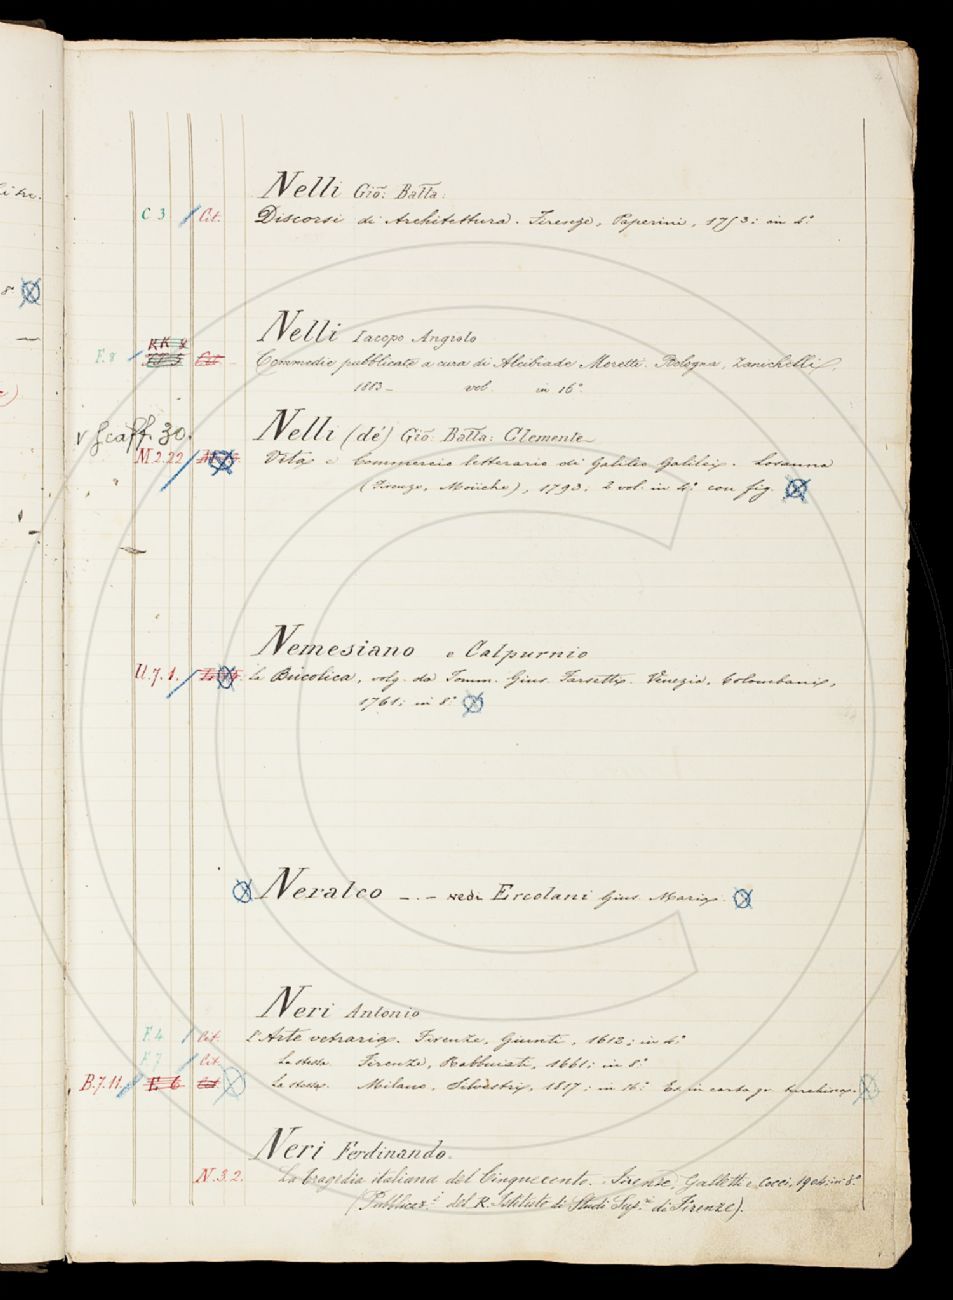 Nelli Gio: Batta:
C 3 Cit. Discorsi di Architettura. Firenze, Paperini, 1753; in 4°
Nelli Iacopo Angiolo
F. 8 Cit. Commedie pubblicate a cura di Alcibiade Moretti. Bologna, Zanichelli,
1883 – vol. in 16°
v Scaff. 30. Nelli (de') Gio: Batta: Clemente
M 2.22 Vita e Commercio letterario di Galileo Galilei. Losanna
(Firenze, Moücke), 1793; 2 vol. in 4° con fig.
Nemesiano e Calpurnio
U. 7. 1. Le Bucolica, volg. da Tomm. Gius. Farsetti. Venezia, Colombani,
1761; in 8°
Neralco – . – vedi Ercolani Gius. Maria.
Neri Antonio
F. 4 Cit. L'Arte vetraria. Firenze, Giunti, 1612; in 4°
F. 7 Cit. La stessa. Firenze, Rabbuiati, 1661; in 8°
B. 7. 11. F. 6 Cit La stessa. Milano, Silvestri, 1817; in 16° Es. in carta gr. turchina.
Neri Ferdinando.
N. 3. 2. La Tragedia italiana del Cinquecento. Firenze, Galletti e Cocci, 1904; in 8°
(Pubblicaz.i del R. Istituto di Studi Sup.ri di Firenze).